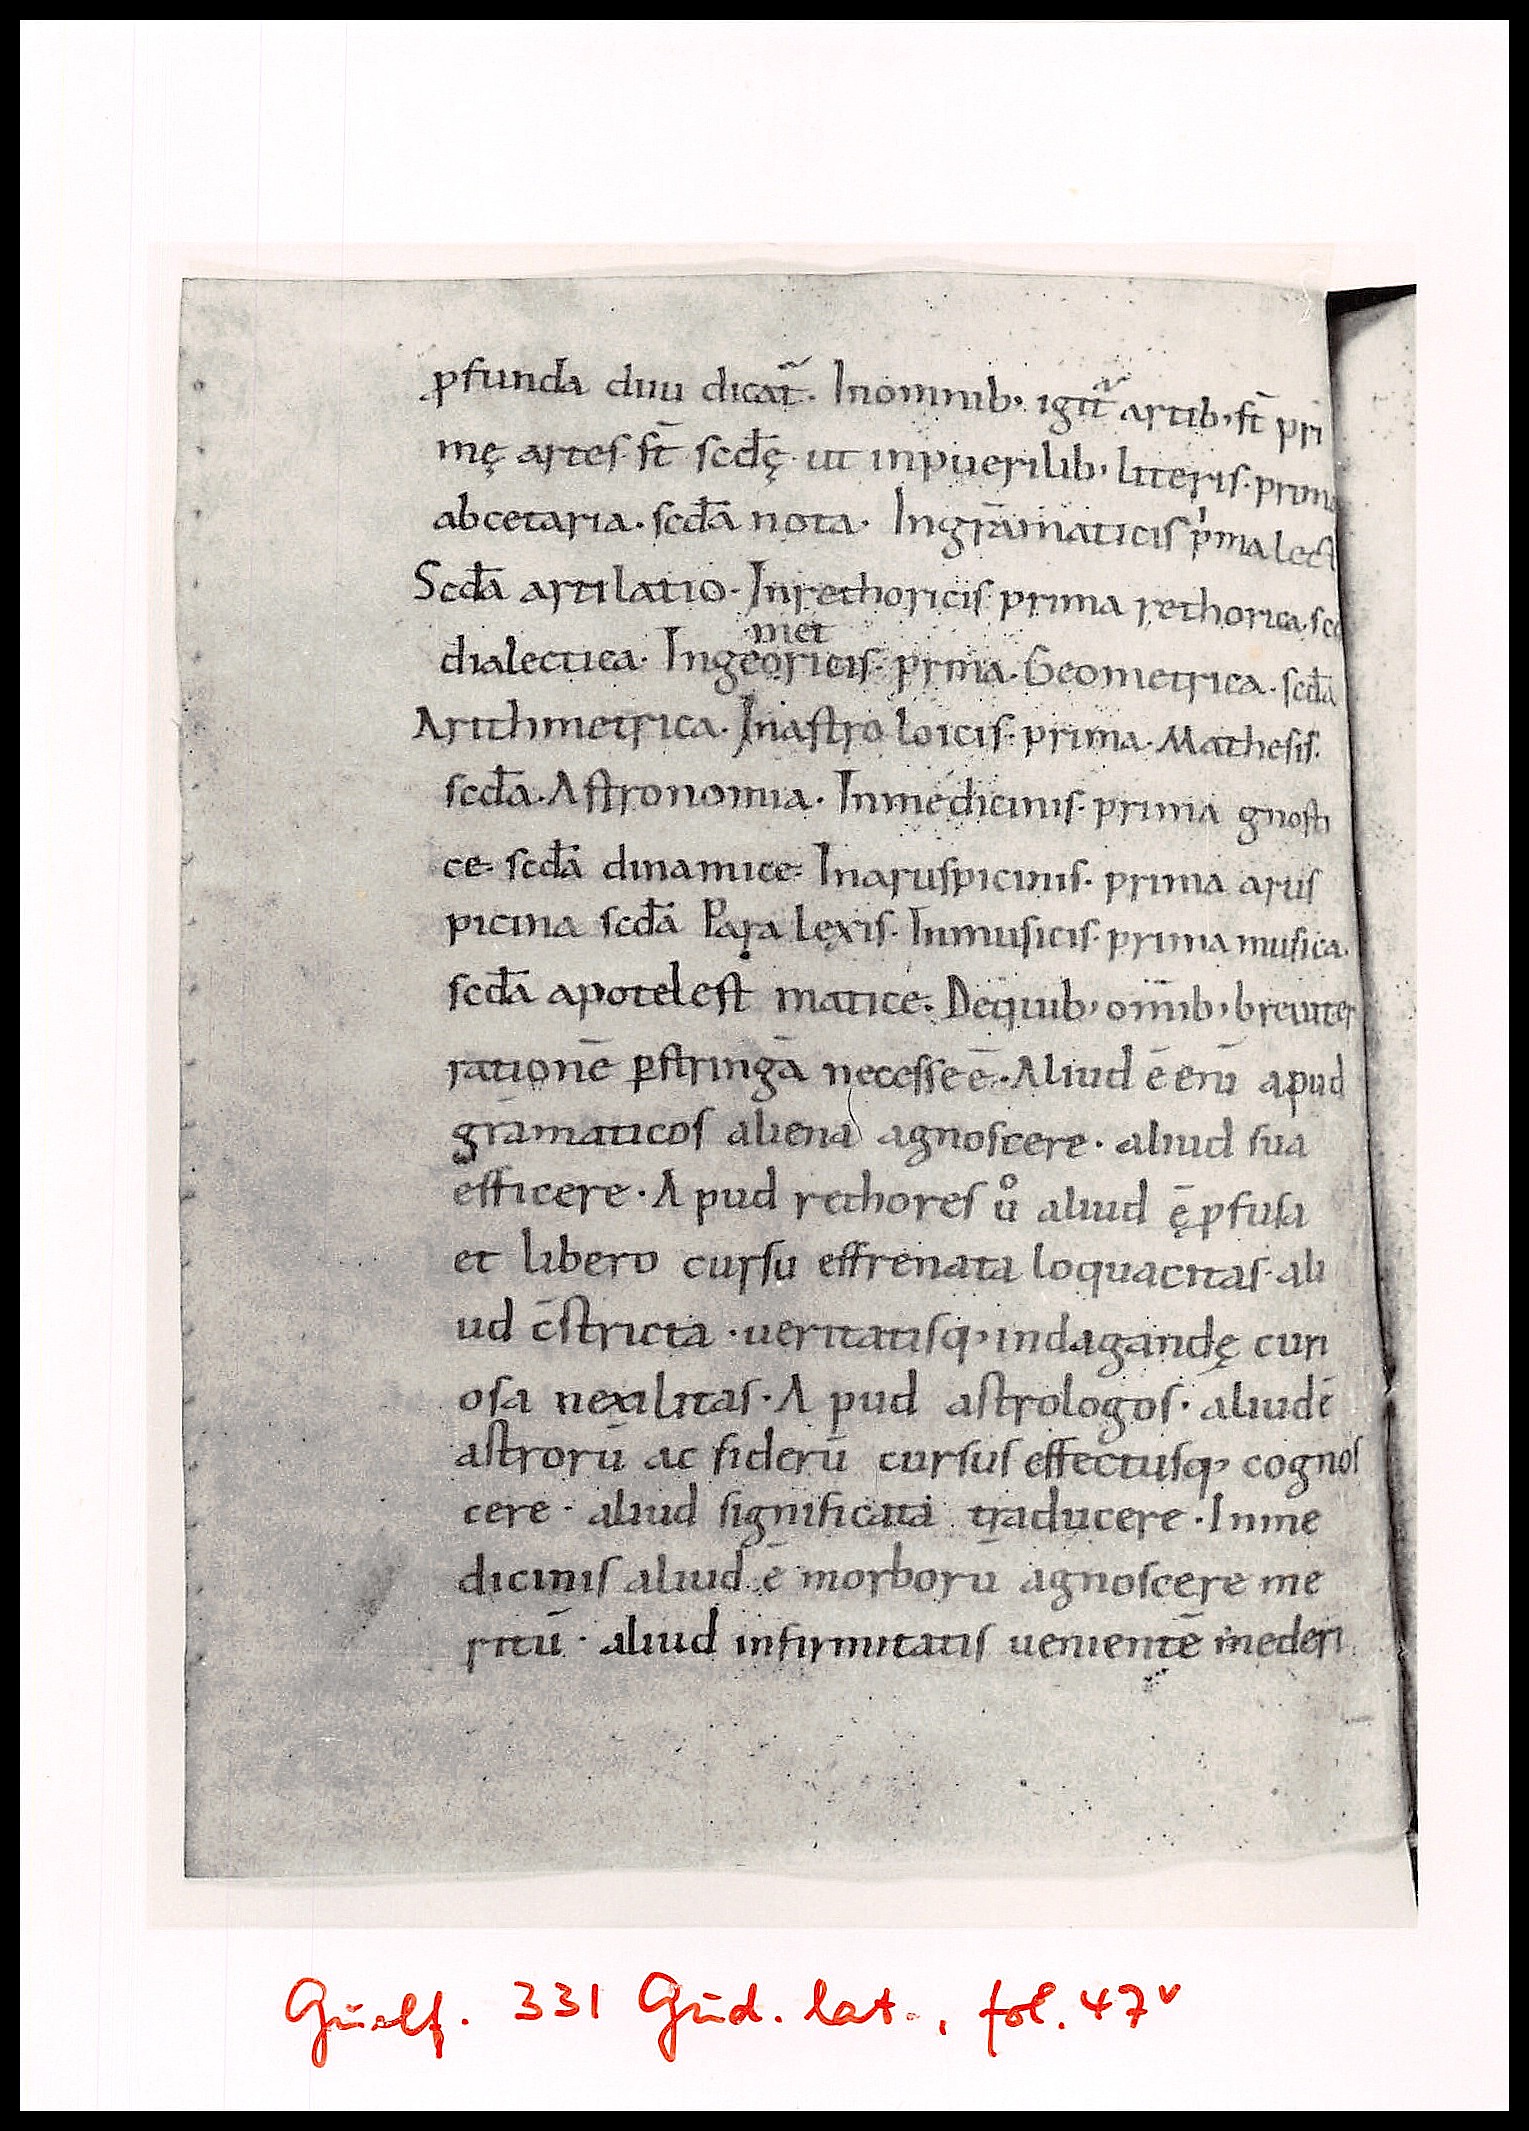 ꝓfunda diuu dicat᷑. Inomnib; igit᷑ artib; ſt̄ pri
mę artes ſt̄ ſcd̄ę ut inpuerilib; literis. prima
abcetaria. ſcd̄a nota. Ingrāmaticis pͥma lect
Scd̄a artilatio. Inrethoricis prima rethorica. ſcd
dialectica. Ingeoricis. prima. Geometrica. ſcd̄a
met
Arithmetrica. Inaſtro loicis. prima. Mathesis.
ſcd̄a. Aſtronomia. Inmedicinis. prima gnoſti
ce. ſcd̄a dinamice. Inaruſpicinis. prima arus
picina ſcd̄a Para lexis. Inmuſicis. prima muſica.
ſcd̄a apoteleſt matice. Dequib; om̄ib; breuiter
rationē ꝑſtringā neceſſe ē. Aliud ē enī apud
grāmaticos aliena agnoſcere. aliud ſua
efficere. Apud rethores uͦ aliud ę̄ ꝓfuſa
et libero curſu effrenata loquacitas. ali
ud c̄ſtricta. ueritatiſq; indagandę curi
oſa nexilitas. Apud aſtrologos. aliud ē
aſtrorū ac ſiderū curſus effectuſq; cognoſ
cere. aliud ſignificata traducere. Inme
dicinis aliud ē morborū agnoſcere me
ritū. aliud infirmitatis uenientē mederi
Guelf. 331 Gud. lat., fol. 47v